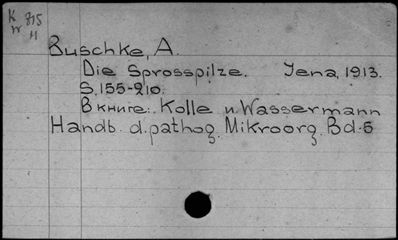 K 815
W 11
Buschke, A.
Die Sprosspilze. Jena, 1913.
S. 155-210.
В книге: Kolle и Wassermann
Handb. d. pathog. Mikroorg. Bd. 5